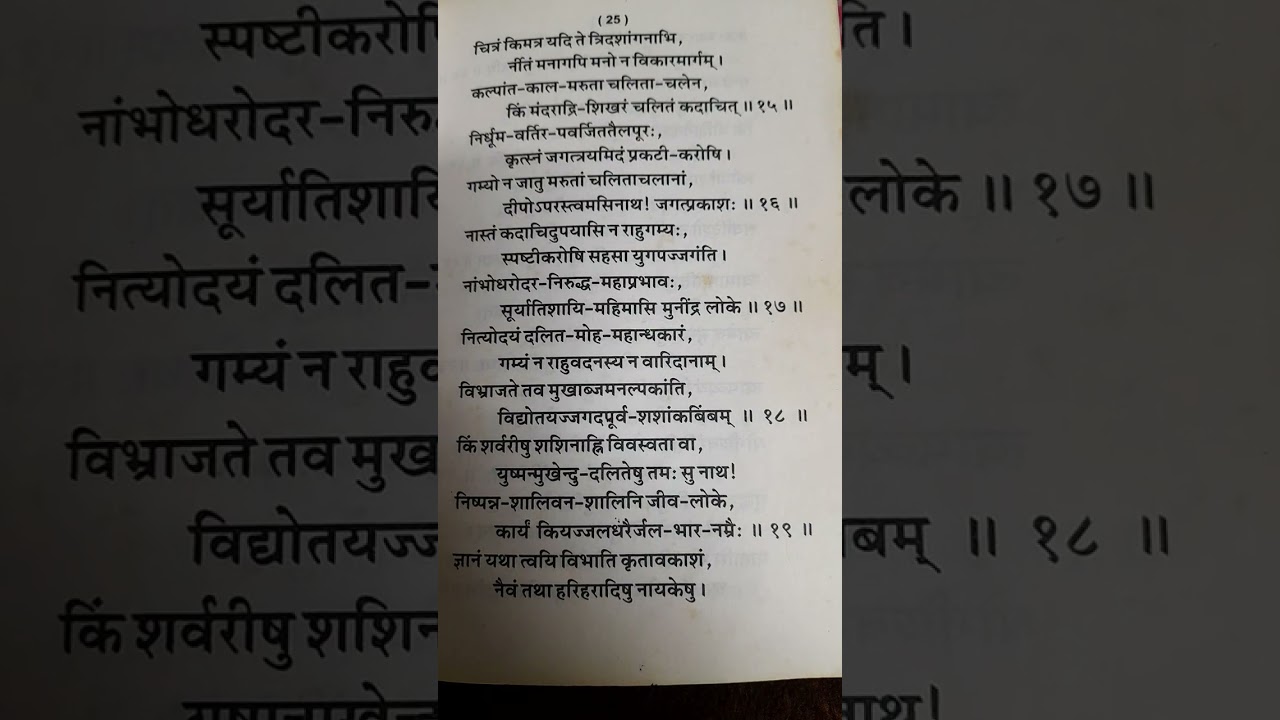 ( 25 )
चित्रं किमत्र यदि ते त्रिदशांगनाभि,
नींतं मनागपि मनो न विकारमार्गम् ।
कल्पांत-काल-मरुता चलिता-चलेन,
किं मंदराद्रि-शिखरं चलितं कदाचित् ॥ १५ ॥
निर्धूम-वर्तिर-पवर्जिततैलपूरः,
कृत्स्नं जगत्त्रयमिदं प्रकटी-करोषि ।
गम्यो न जातु मरुतां चलिताचलानां,
दीपोऽपरस्त्वमसिनाथ! जगत्प्रकाशः ॥ १६ ॥
नास्तं कदाचिदुपयासि न राहुगम्यः,
स्पष्टीकरोषि सहसा युगपज्जगंति ।
नांभोधरोदर-निरुद्ध-महाप्रभावः,
सूर्यातिशायि-महिमासि मुनींद्र लोके ॥ १७ ॥
नित्योदयं दलित-मोह-महान्धकारं,
गम्यं न राहुवदनस्य न वारिदानाम् ।
विभ्राजते तव मुखाब्जमनल्पकांति,
विद्योतयज्जगदपूर्व-शशांकबिंबम् ॥ १८ ॥
किं शर्वरीषु शशिनाह्नि विवस्वता वा,
युष्मन्मुखेन्दु-दलितेषु तमः सु नाथ!
निष्पन्न-शालिवन-शालिनि जीव-लोके,
कार्यं कियज्जलधंरैर्जल-भार-नम्रैः ॥ १९ ॥
ज्ञानं यथा त्वयि विभाति कृतावकाशं,
नैवं तथा हरिहरादिषु नायकेषु ।